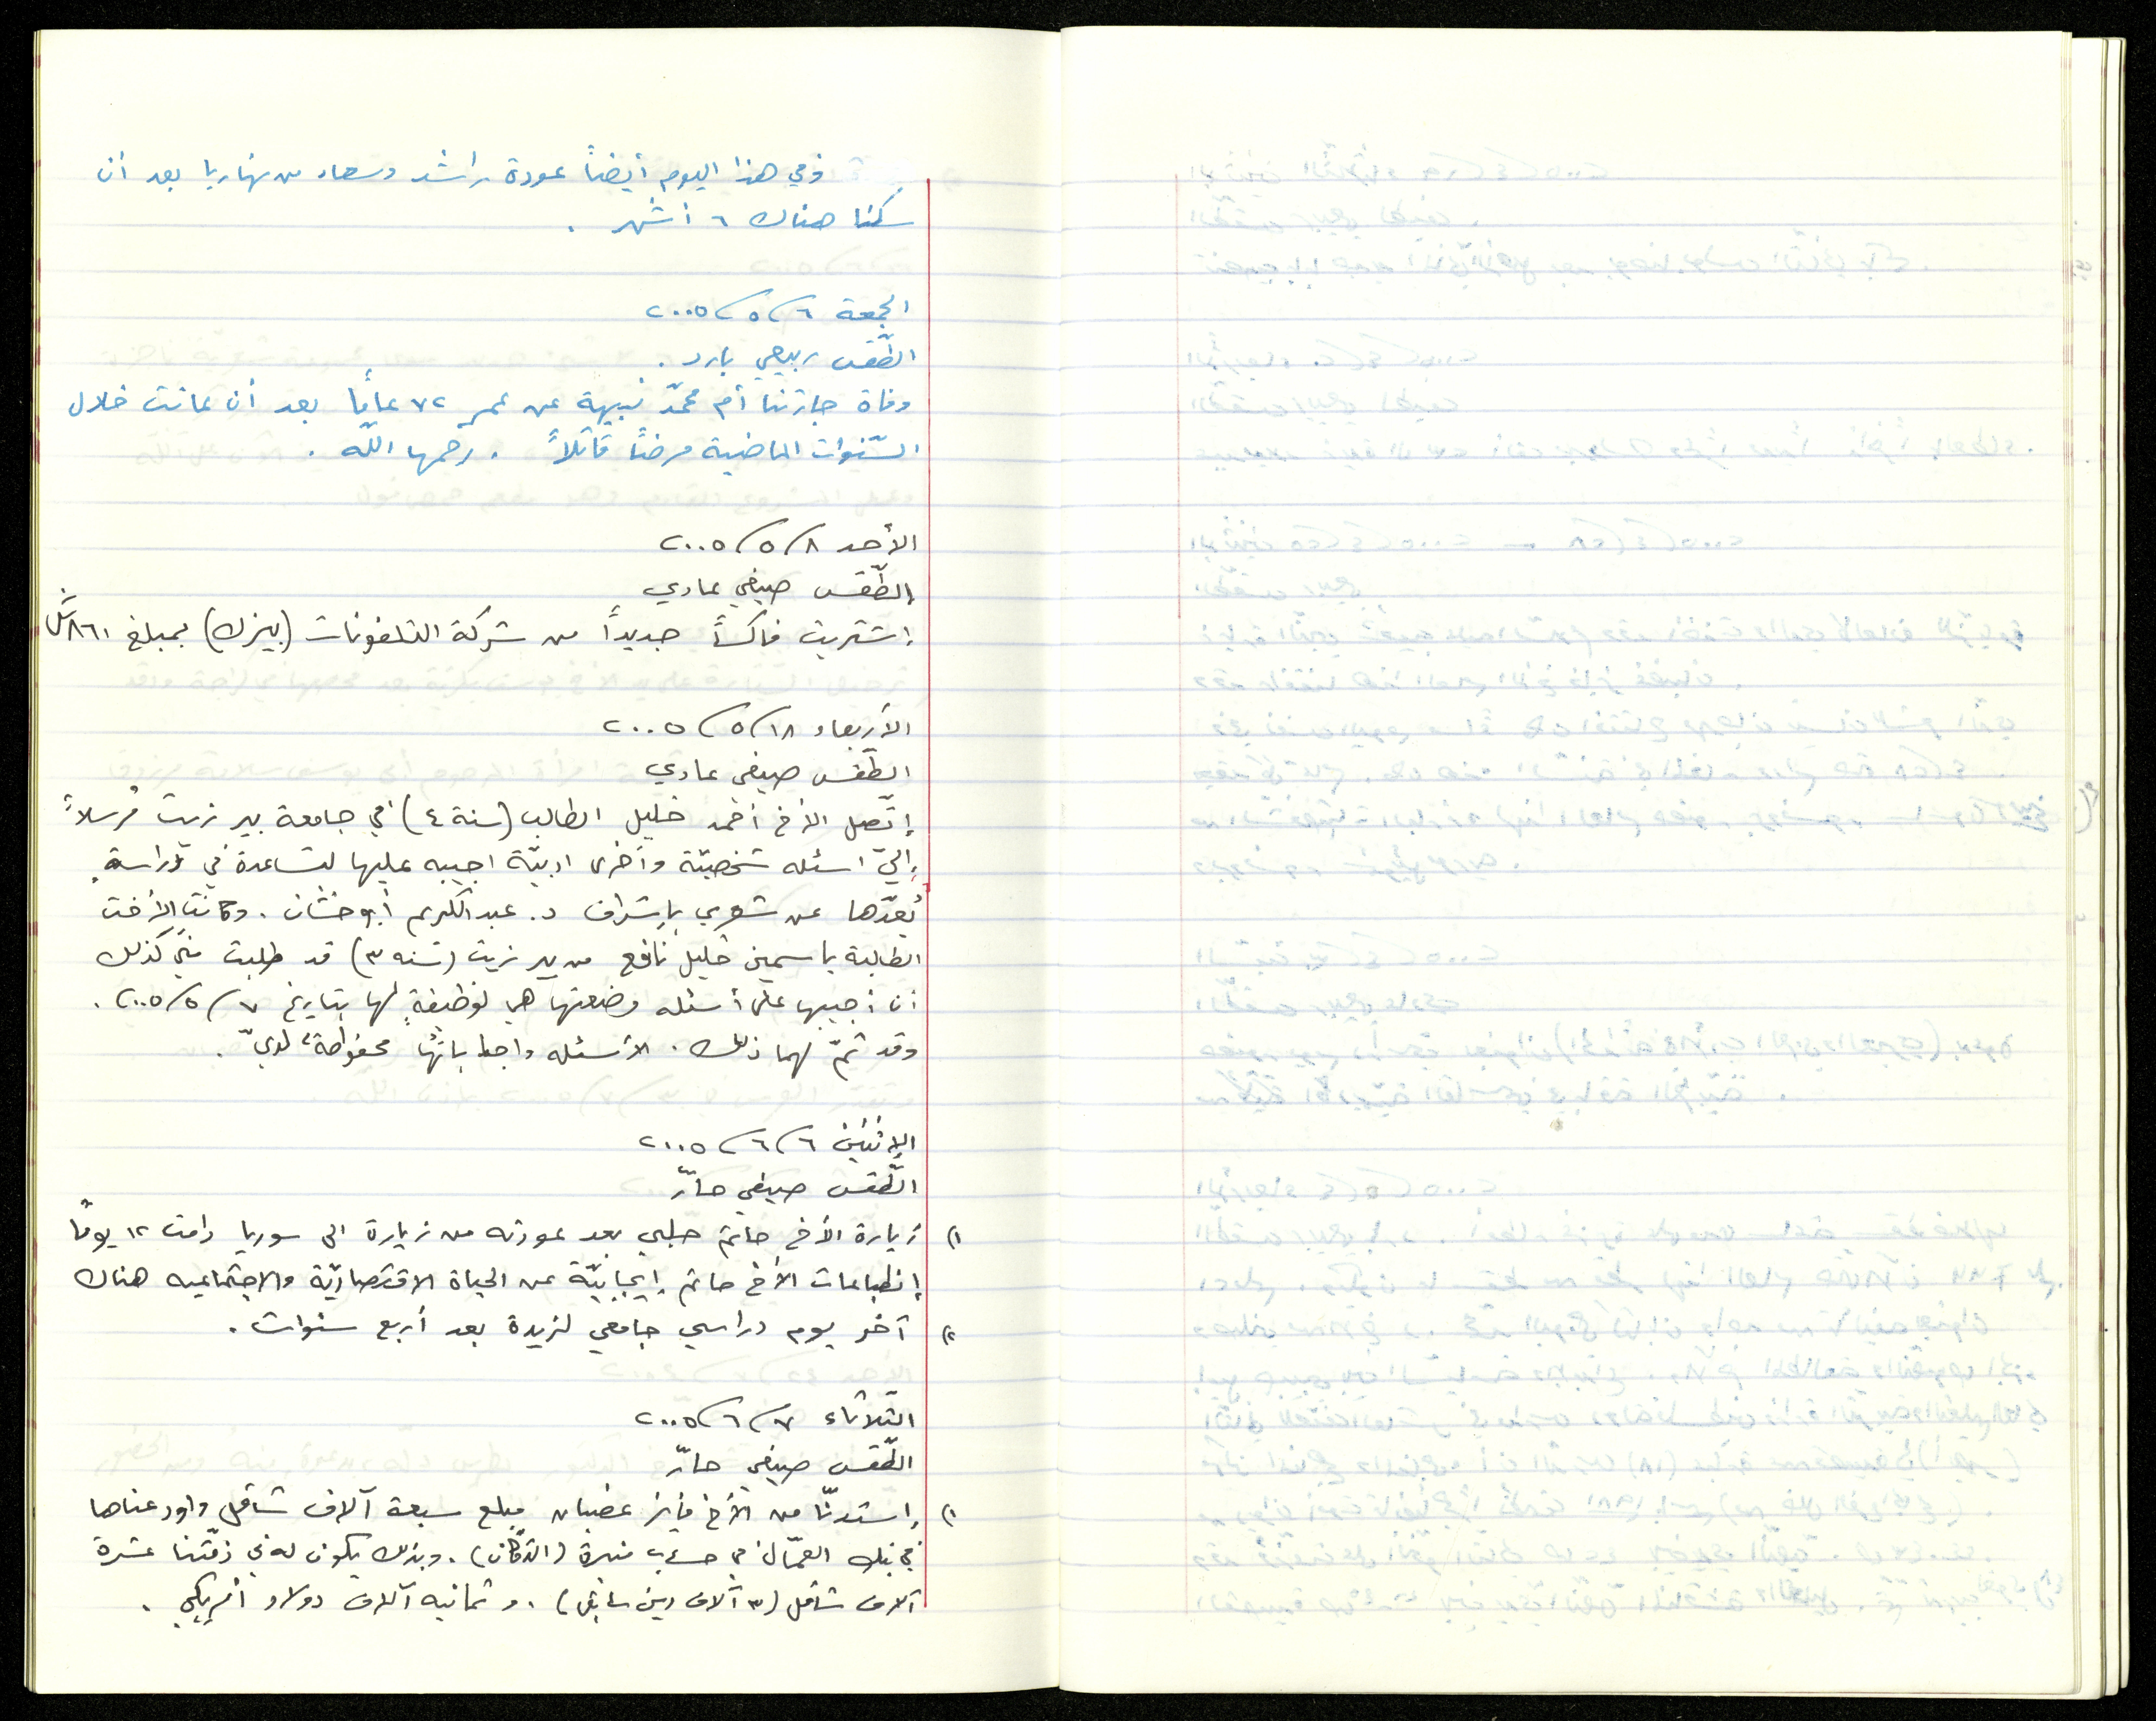 وفي هذا اليوم أيضاً عودة راشد وسعاد من نهاريا بعد أن
سكنا هناك ٦ أشهر .
الجمعة ٦/٥/٢٠٠٥
الطّقس ربيعي بارد .
وفاة جارتنا أم محمّد نبيهة عن عمر ٧٢ عامًا بعد أن عانت خلال
السّنوات الماضية مرضاً قاتلاً . رحمها اللّه .
الأحد ٨/٥/٢٠٠٥
الطّقس صيفي عادي
إشتريت فاكساً جديداً من شركة التلفونات (بيزك) بمبلغ ٨٦١ ش
الأربعاء ١٨/٥/٢٠٠٥
الطّقس صيفي عادي
إتّصل الأخ أحمد خليل الطالب (سنة ٤) في جامعة بير زيت مُرسلاً
إليّ اسئله شخصيّة وأخرى ادبيّة اجيبه عليها لمساعدة في دراسةٍ
يُعدّها عن شعري بإشراف د. عبد الكريم أبو خشان . وكانت الأخت
الطالبة ياسمين خليل نافع من بير زيت (سنه ٣) قد طلبت منّي كذلك
أن أجيبها على أسئله وضعتها هي لوظيفةٍ لها بتاريخ ٧/٥/٢٠٠٥ .
وقد تمّ لهما ذلك . الأسئله واجاباتُها محفوظةٌ لديّ .
الإثنين ٦/٦/٢٠٠٥
الطّقس صيفي حارّ
١) زيارة الأخ حاتم حلبي بعد عودته من زيارة الى سوريا دامت ١٢ يومًا
إنطباعات الأخ حاتم إيجابيّة عن الحياة الاقتصاديّة والاجتماعيه هناك
٢) آخر يوم دراسي جامعي لزيدة بعد أربع سنوات .
الثلاثاء ٧/٦/٢٠٠٥
الطّقس صيفي حارّ
١) إستدنّا من الأخ فايز غضبان مبلغ سبعة آلاف شاقل واودعناها
في بنك العمّال في حساب منيرة (الدّكّان) . وبذلك يكون له في ذمّتنا عشرة
آلاف شاقل (٣ آلاف دين سابق) . وثمانيه آلاف دولار أمريكي .